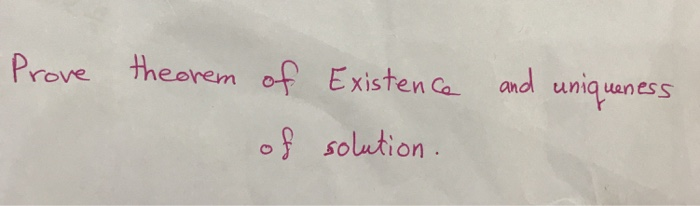 Prove theorem of Existence and uniqueness
of solution.